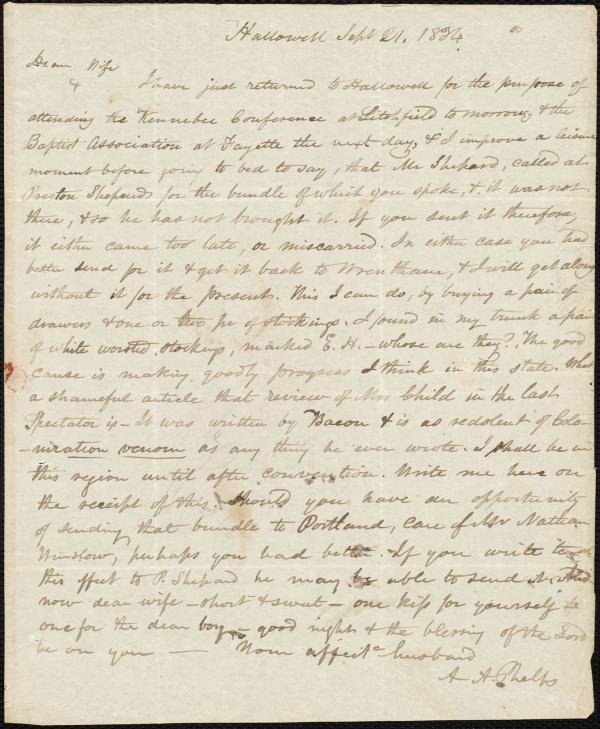 Hallowell Sept 21. 1834
Dear Wife
I have just returned to Hallowell for the purpose of
attending the Kennebec Conference at Litchfield tomorrow, & the
Baptist Association at Fayette the next day, & I improve a leisure
moment before going to bed to say, that Mr Shepard, called at
Preston Shepards for the bundle of which you spoke, & it was not
there, & so he has not brought it. If you sent it therefore,
it either came too late, or miscarried. In either case you had
better send for it & get it back to Wrentham, & I will get along
without it for the present. This I can do, by buying a pair of
drawers & one or two pr of stockings. I found in my trunk a pair
of white worsted stockings, marked E. H. - whose are they? The good
cause is making goodly progress I think in this state. What
a shameful article that review of Mrs Child in the last
Spectator is - It was written by Bacon & is as redolent of Colo-
-nization venom as any thing he ever wrote. I shall be in
this region until after convention. Write me here on
the receipt of this. Should you have an opportunity
of sending that bundle to Portland, Care of Mr Nathan
Winslow, perhaps you had better. If you write to
this effect to P. Shepard he may be able to send it. And
now dear wife - short & sweet - one kiss for yourself &
one for the dear boy - good night & the blessing of the Lord
be on you - Your affecte husband
A. A. Phelps